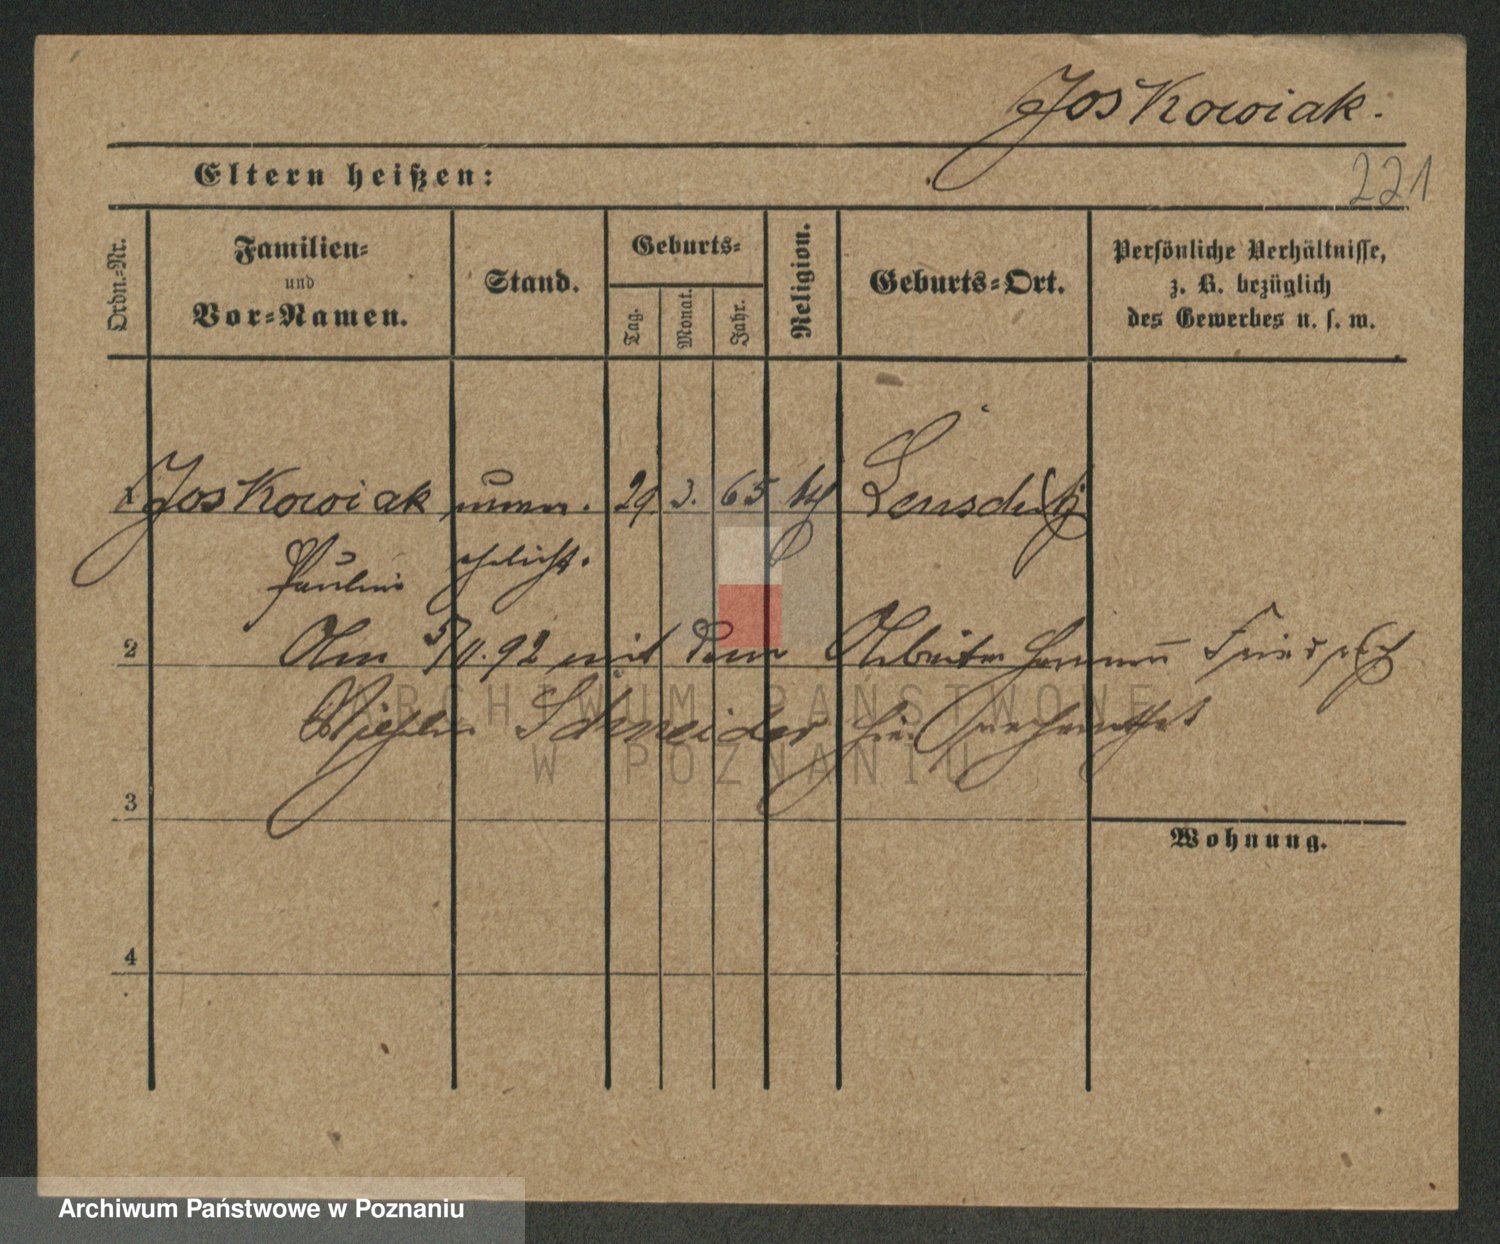 Joskowiak.
221
Eltern heißen:
Ordn.=Nr.
Familien=
und
Vor=Namen.
Stand.
Geburts=
Tag.
Monat.
Jahr.
Religion.
Geburts=Ort.
Persönliche Verhältnisse,
z. B. bezüglich
des Gewerbes u. s. w.
1 Joskowiak unver. 29 3. 65 kth
Pauline ehelicht.
2 Am 5/11. 92 mit dem Arbeiter Hermann
Wilhelm Schneider hier verheirathet
ARCHIWUM PAŃSTWOWE
W POZNANIU
3
Wohnung.
4
Archiwum Państwowe w Poznaniu